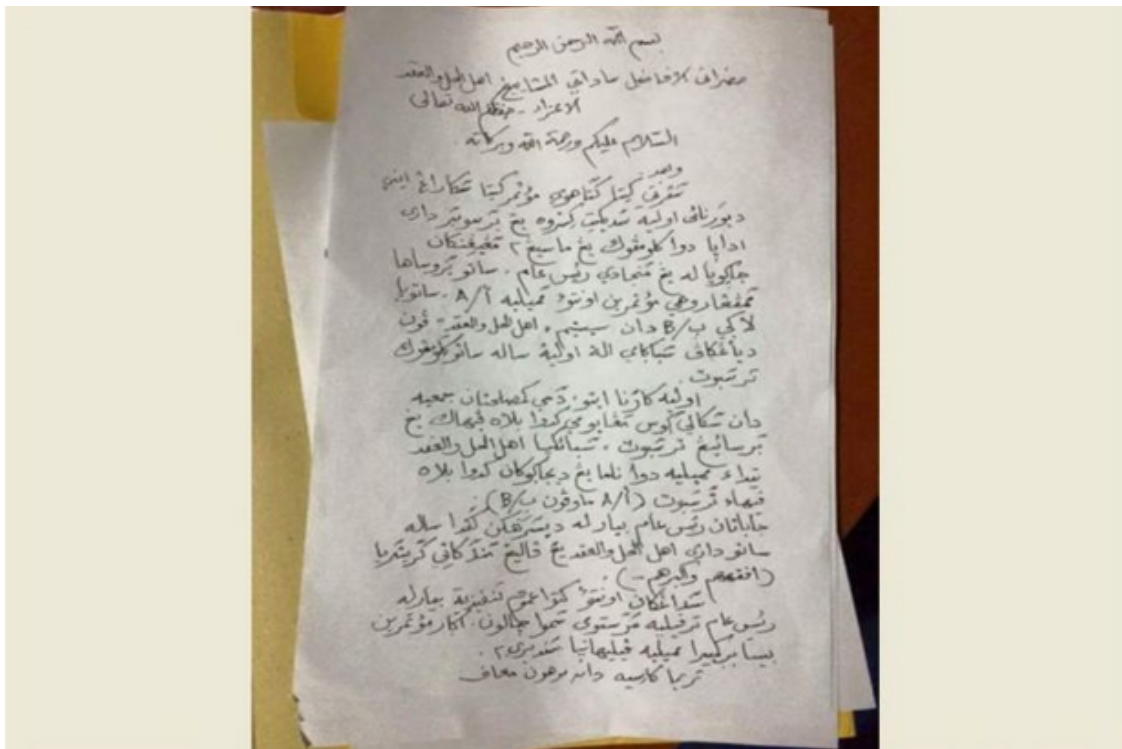 بسم الله الرحمن الرحيم
حضرات الأفاضل ساداتي المشايخ اهل الحل والعقد
الاعزاء - حفظكم الله تعالى
السّلام عليكم ورحمة الله وبركاته
وبعد
كيتا مؤتمر كيتا سكاراڠ ايني
اوليه يڠ داري
ادا دوا كلومڤوك يڠ ماسيڠ٢
له يڠ منجادي رئيس عام. ساتو بروساها
مؤتمرين اونتوء مميليه أ/A. ساتو
لاڬي ب/B دان سيستيم اهل الحل والعقد - ڤون
سباڬاي الة اوليه ساله ساتو كلومڤوك
ترسبوت.
اوليه كارنا ايتو، دمي كمصلحتان جمعيه
دان سكاليڬوس كدوا بلاه ڤيهاك يڠ
برسائيڠ ترسبوت، سبائكيا اهل الحل والعقد
تيداء مميليه دوا ناما يڠ ديجاڬوكان كدوا بلاه
ڤيهاء ترسبوت (أ/A ماوڤون ب/B).
جاباتان رئيس عام بيارله ديسرهكن كڤدا ساله
ساتو داري اهل الحل والعقد يڠ ڤاليڠ كريتريا
(افقههم واكبرهم..).
سداڠكان اونتوء كتوا عموم تنفيذية بيارله
رئيس عام ترڤيليه سموا چالون، اڬار مؤتمرين
بيسا مميليه ڤيليهانيا سنديري٢.
تريما كاسيه دان موهون معاف